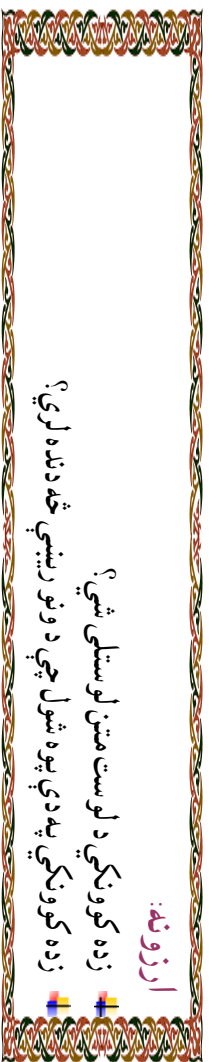 ارزونه:
زده کوونکي د لوست متن لوستلی شي؟
زده کوونکي په دې پوه شول چې د ونو ریښې څه دنده لري؟